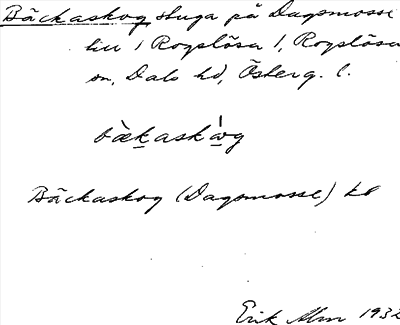 Bäckaskog stuga på Dagsmosse
till 1 Rogslösa 1, Rogslösa
sn, Dals hd, Österg. l.
bæ̀kaskẃg
Bäckaskog (Dagsmosse) kb
Erik Alm 1932